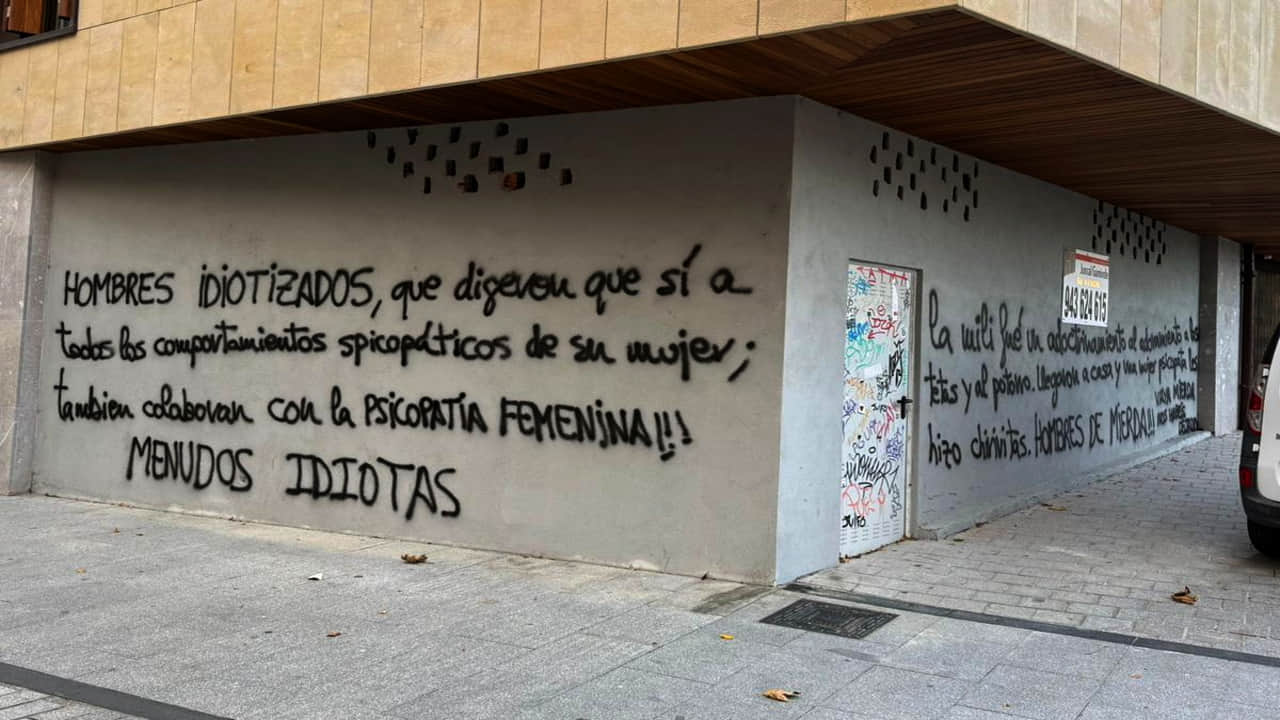 HOMBRES IDIOTIZADOS, que digeron que sí a
todos los comportamientos spicopáticos de su mujer;
tambien colaboran con la PSICOPATIA FEMENINA!!!
MENUDOS IDIOTAS
la mili fué un adoctrinamiento al a los
tetas y al potorro. llegaron a casa y una mujer psicopata los
hizo chirivitas. HOMBRES DE MIERDA!!
943 624 615